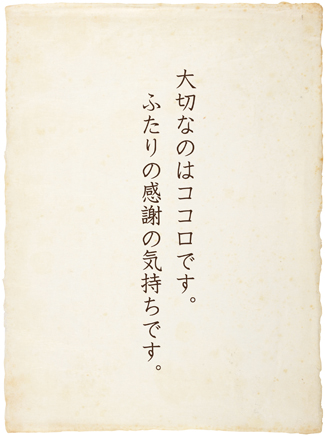 大切なのはココロです。
ふたりの感謝の気持ちです。